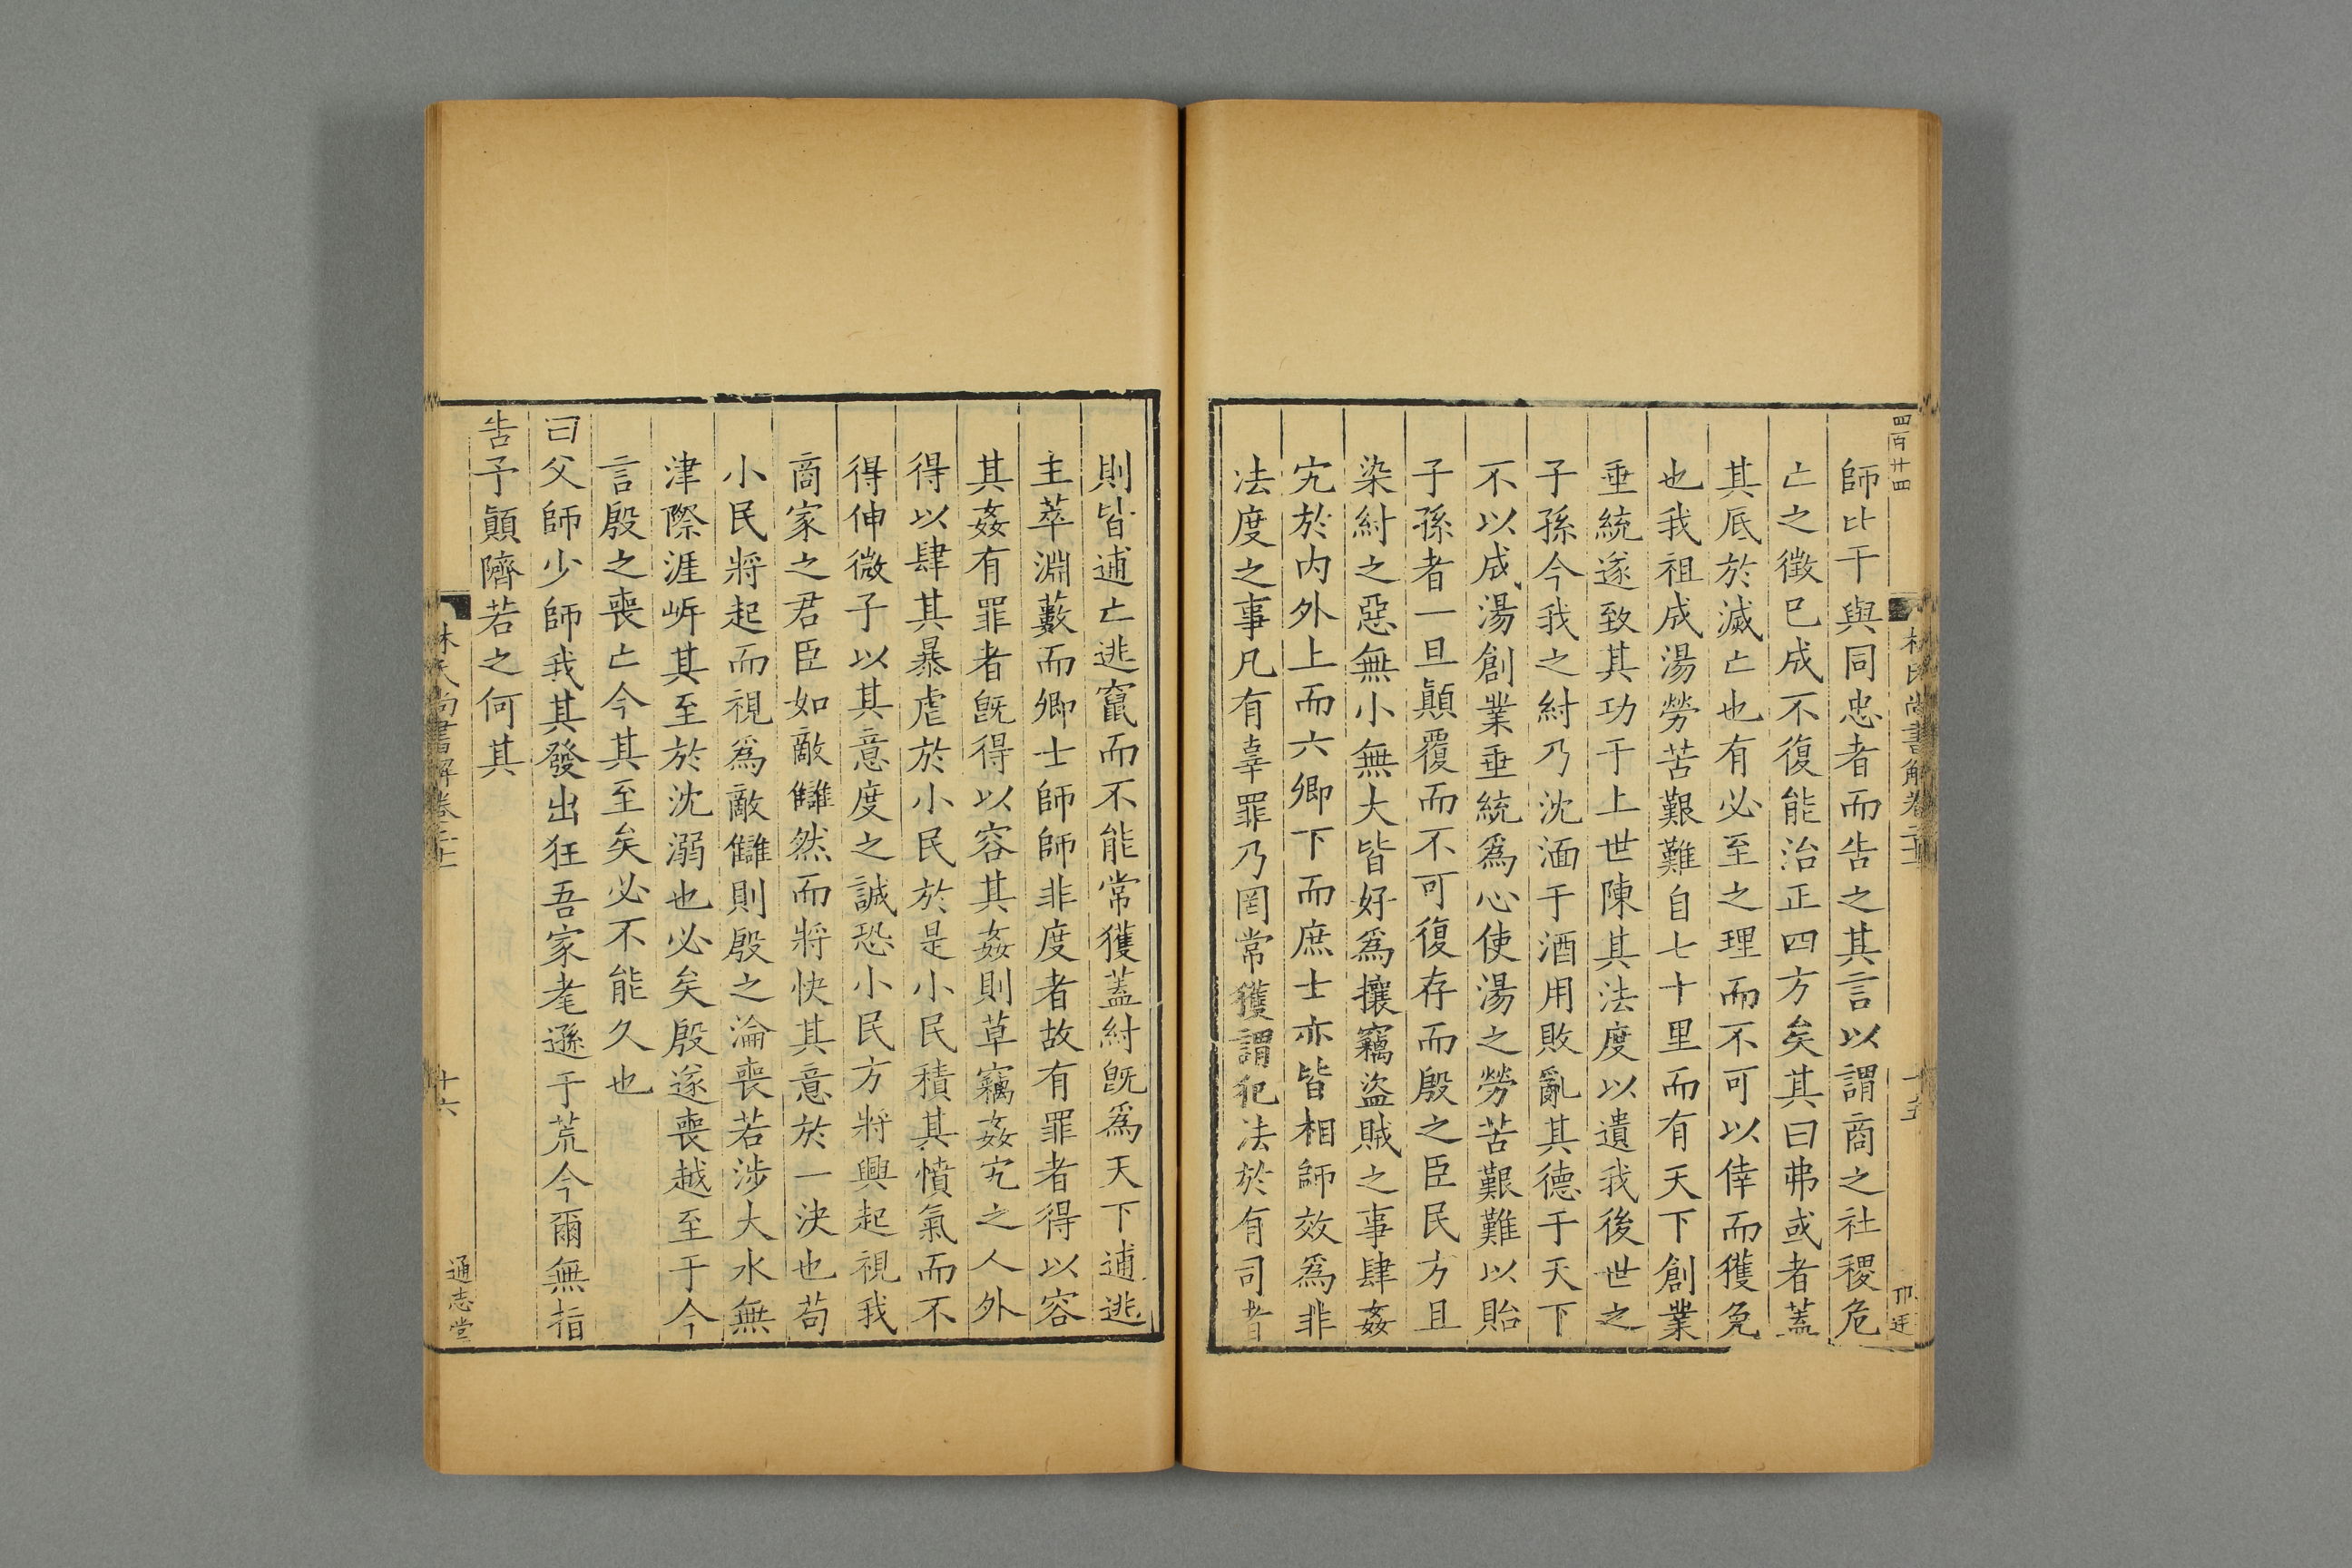 四百廿四
林氏尚書解卷二十
十五
師比干與同忠者而告之其言以謂商之社稷危
亡之徵已成不復能治正四方矣其曰弗或者蓋
其底於滅亡也有必至之理而不可以倖而獲免
也我祖成湯勞苦艱難自七十里而有天下創業
垂統遂致其功于上世陳其法度以遺我後世之
子孫今我之紂乃沈湎于酒用敗亂其德于天下
不以成湯創業垂統爲心使湯之勞苦艱難以貽
子孫者一旦顚覆而不可復存而殷之臣民方且
染紂之惡無小無大皆好爲攘竊盜賊之事肆姦
宄於内外上而六卿下而庶士亦皆相師效爲非
法度之事凡有辜罪乃罔常獲謂犯法於有司者
則皆逋亡逃竄而不能常獲蓋紂旣爲天下逋逃
主萃淵藪而卿士師師非度者故有罪者得以容
其姦有罪者旣得以容其姦則草竊姦宄之人外
得以肆其暴虐於小民於是小民積其憤氣而不
得伸微子以其意度之誠恐小民方將興起視我
商家之君臣如敵讎然而將快其意於一決也苟
小民將起而視爲敵讎則殷之淪喪若涉大水無
津際涯㟁其至於沈溺也必矣殷遂喪越至于今
言殷之喪亡今其至矣必不能久也
曰父師少師我其發出狂吾家耄遜于荒今爾無指
告予顚隮若之何其
林氏尚書解卷二十
十六
通志堂